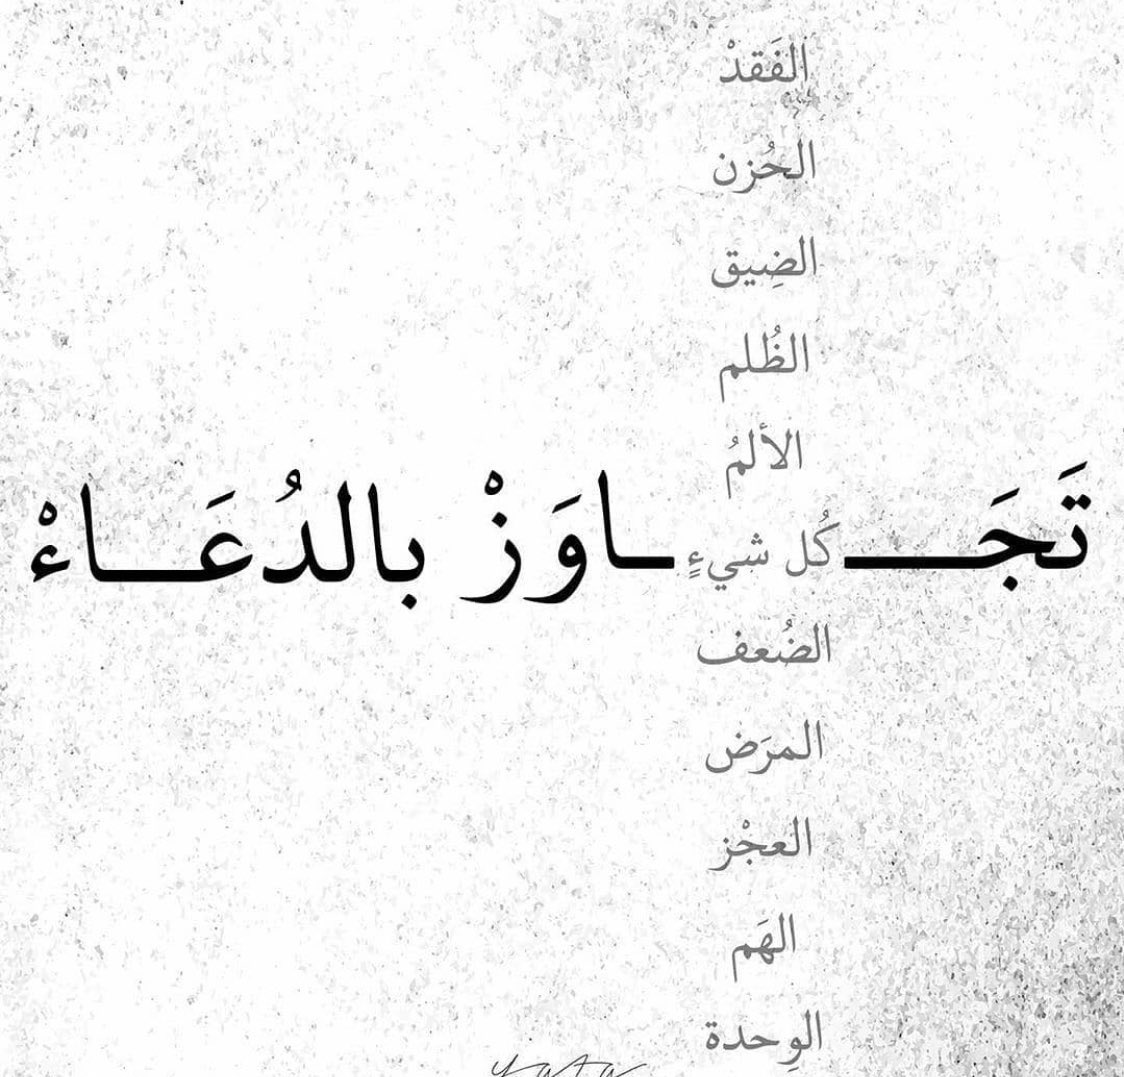 الفَقدْ
الحُزن
الضِيق
الظُلم
الألمُ
تَجَـــــ كُل شيءٍ ـــاوَزْ بالدُعَـــاءْ
الضُعف
المرَض
العجْز
الهَم
الوِحدة